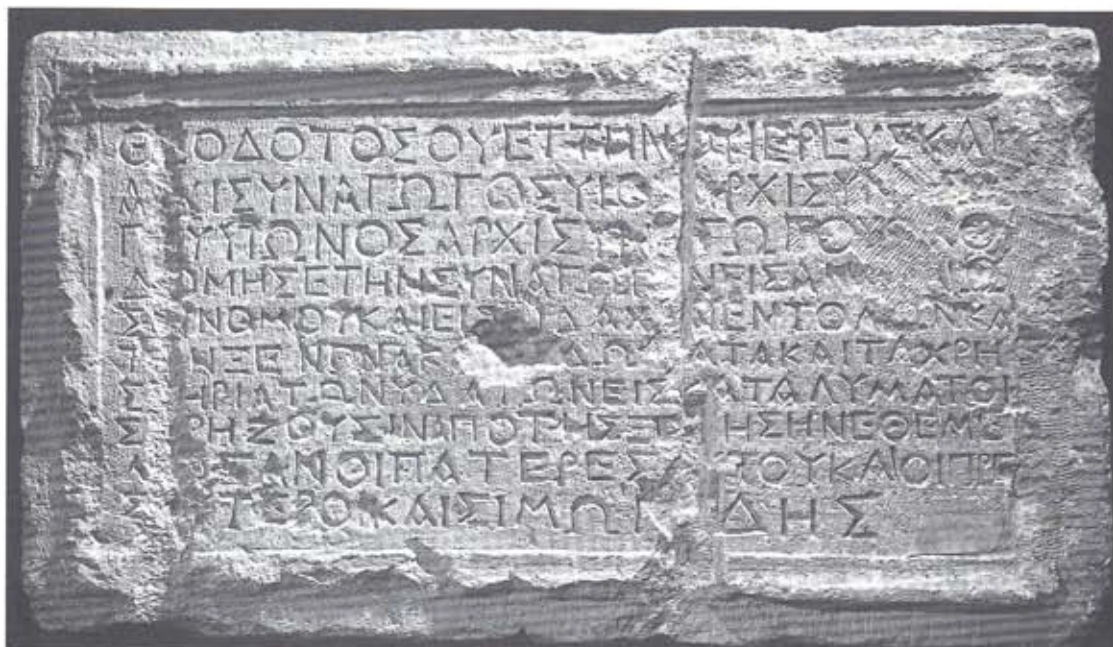 ΘΕΟΔΟΤΟΣΟΥΕΤΤΗΝΟΥΙΕΡΕΥΣΚΑΙ
ΑΡΧΙΣΥΝΑΓΩΓΟΣΥΙΟΣΑΡΧΙΣΥ
ΓΟΥΥΙΩΝΟΣΑΡΧΙΣΥΝΑΓΩΓΟΥΩΚΟ
ΔΟΜΗΣΕΤΗΝΣΥΝΑΓΩΓΗΝΕΙΣΑΝ ΝΩ
ΣΙΝΝΟΜΟΥΚΑΙΕΙΣΔΙΔΑΧΗΝΕΝΤΟΛΩΝΚΑΙ
ΤΟΝΞΕΝΩΝΑΚΑ ΔΩΜΑΤΑΚΑΙΤΑΧΡΗ
ΣΤΗΡΙΑΤΩΝΥΔΑΤΩΝΕΙΣΚΑΤΑΛΥΜΑΤΟΙ
ΣΧΡΗΖΟΥΣΙΝΑΠΟΤΗΣΞΕΝΗΣΗΝΕΘΕΜΕ
ΛΙΩΣΑΝΟΙΠΑΤΕΡΕΣΑΥΤΟΥΚΑΙΟΙΠΡΕ
ΣΒΥΤΕΡΟΙΚΑΙΣΙΜΩΝΙΔΗΣ